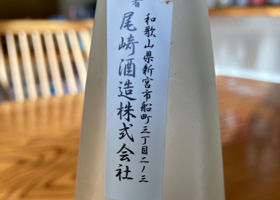 和歌山県新宮市船町三丁目二ノ三
尾崎酒造株式会社